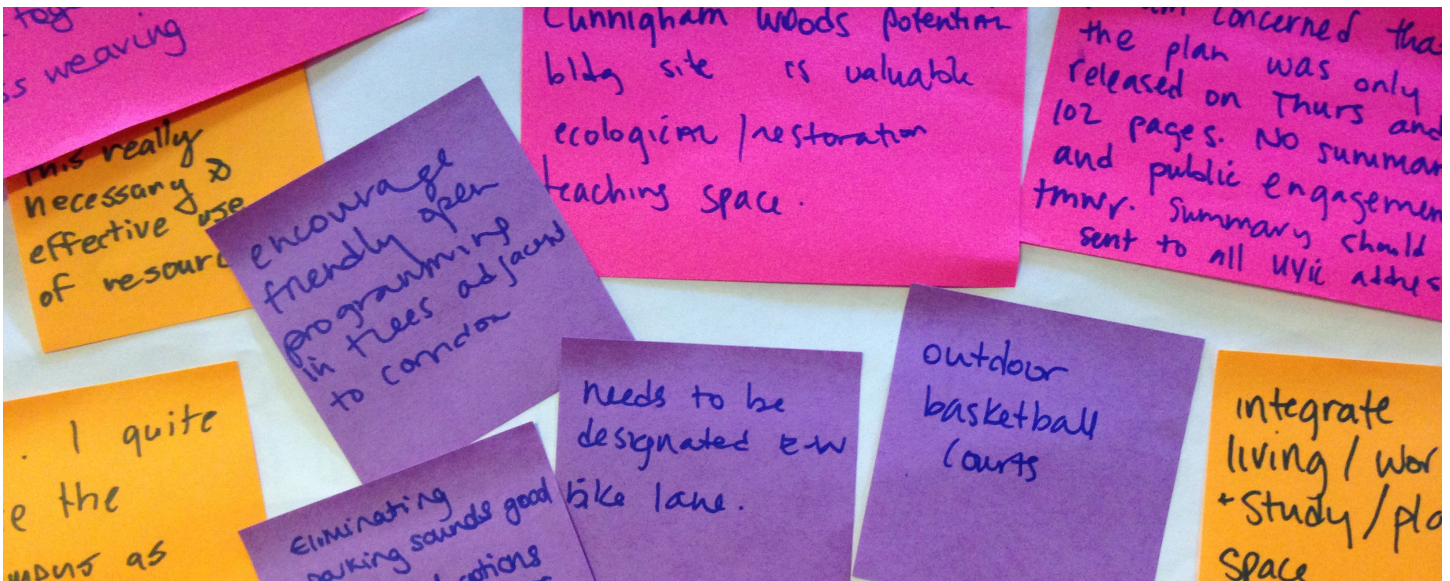 toge
ss weaving
This really
necessary &
effective use
of resourc
encourage
friendly open
programming
in trees adjacent
to corridor
Cunnigham Woods potential
bldg site is valuable
ecological / restoration
teaching space.
concerned tha
the plan was only
released on Thurs and
102 pages. No summar
and public engagemen
tmwr. Summary should
sent to all UVic addres
. I quite
e the
mpus as
Eliminating
parking sounds good
options
needs to be
designated E-W
bike lane.
outdoor
basketball
courts
integrate
living / wor
+ study / pla
space